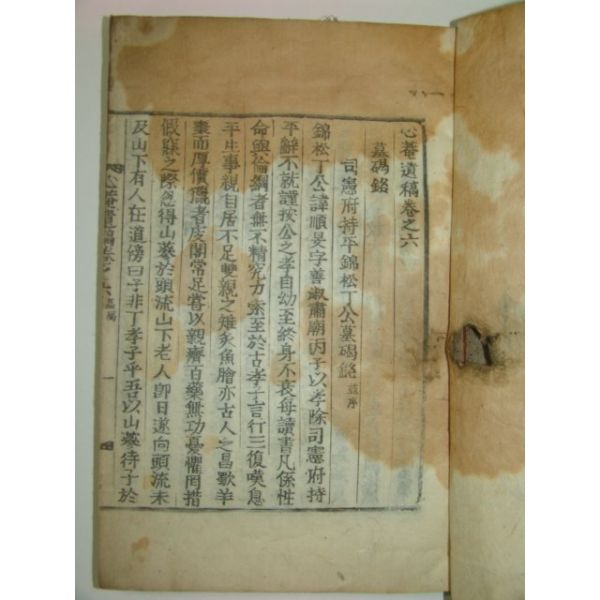 心菴遺稿卷之六
墓碣銘
司憲府持平錦松丁公墓碣銘 並序
錦松丁公諱順旻字善淑肅廟丙子以孝除司憲府持
平辭不就謹按公之孝自幼至終身不衰每讀書凡係性
命與倫綱者無不精究力索至於古孝子言行三復嘆息
平生事親自居不足雙親之雉炙魚膾亦古人之昌歜羊
棗而厚價購者庋閣常足嘗以親癠百藥無功憂懼罔措
假寐之際忽得山蔘於頭流山下老人卽日遂向頭流未
及山下有人在道傍曰子非丁孝子乎吾以山蔘待子於
心菴遺稿卷之六 墓碣 一